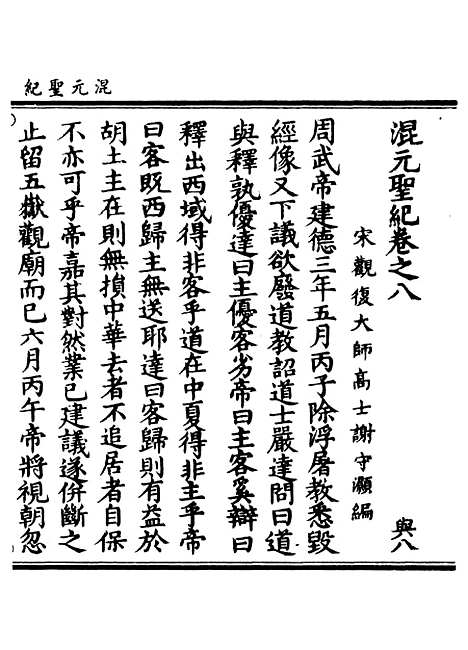 混元聖紀
混元聖紀卷之八
與八
宋觀復大師高士謝守灝編
周武帝建德三年五月丙子除浮屠教悉毀
經像又下議欲廢道教詔道士嚴達問曰道
與釋孰優達曰主優客劣帝曰主客奚辯曰
釋出西域得非客乎道在中夏得非主乎帝
曰客既西歸主無送耶達曰客歸則有益於
胡土主在則無損中華去者不追居者自保
不亦可乎帝嘉其對然業已建議遂併斷之
止留五嶽觀廟而已六月丙午帝將視朝忽